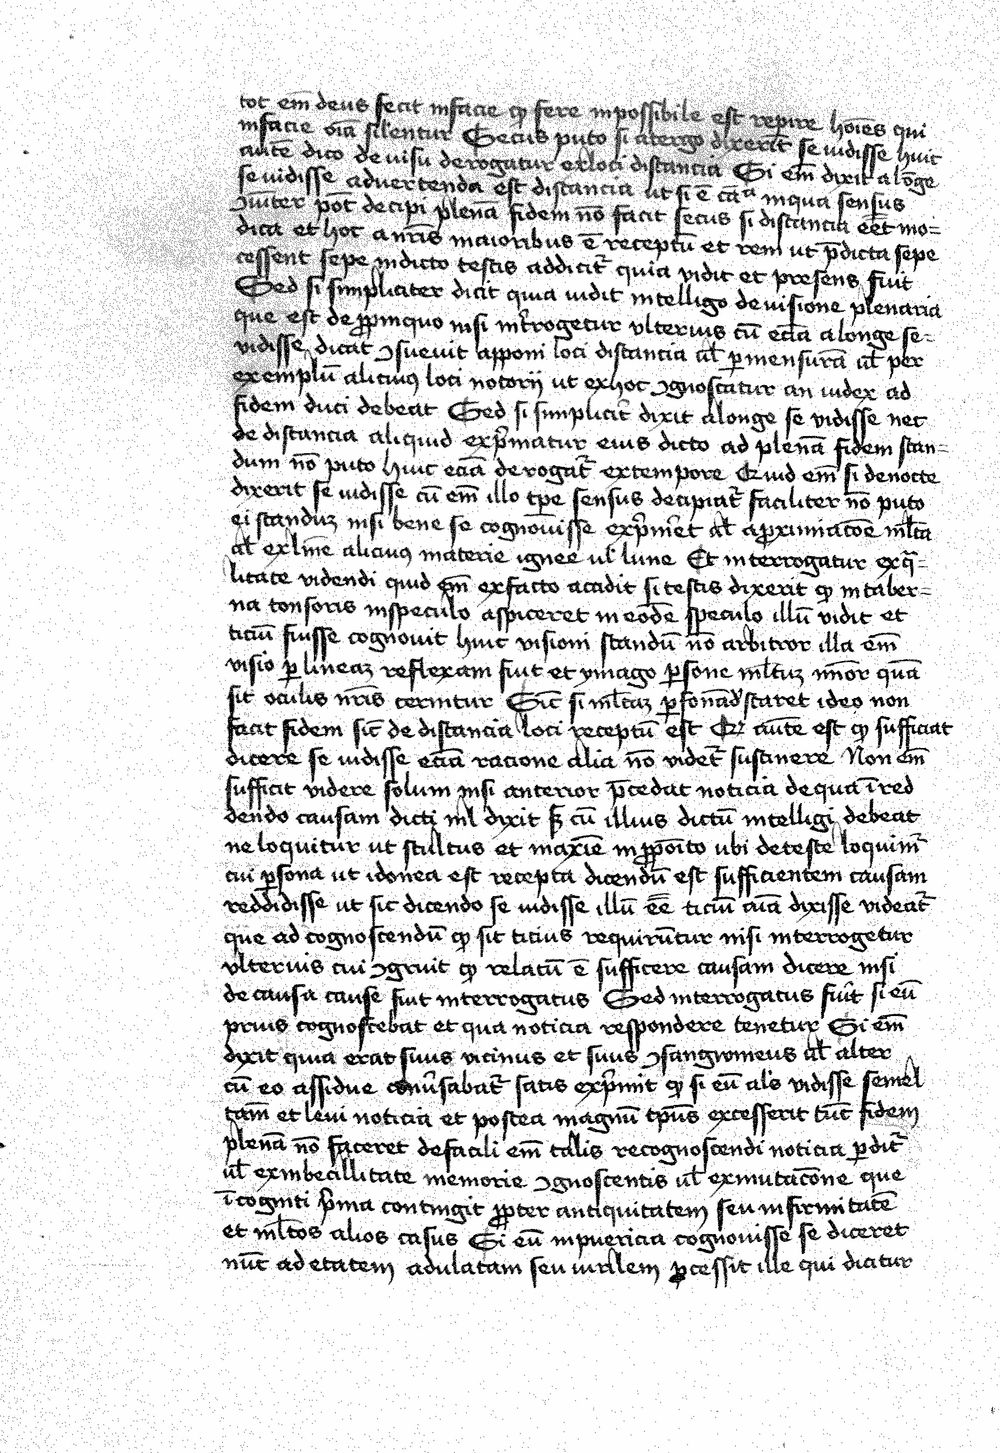 tot em̄ deus fecit in facie qꝫ fere inpossibile est repire hoīes qui
in facie oīa silentur Secus puto si atergo dixerit se uidisse huic
autē dico de uisu derogatur ex loci distancia Si em̄ dixit a lōge
se uidisse advertenda est distancia ut si ē tāta in qua sensus
ꝯiūter pōt decipi plenā fidem nō facit secus si distancia eēt mo=
dica et hoc a nr̄is maioribus ē receptū et rem ut p̄dicta sepe
cessent sepe in dicto testis addicit̄ quia vidit et presens fuit
Sed si simpliciter dicit quia uidit intelligo de uisione plenaria
que est de ꝓpinquo nisi int̄rogetur vlterius cū eciā a longe se=
vidisse dicat ꝯsuevit apponi loci distancia ul̄ ꝑ mensurā ul̄ per
exemplū alicuiꝯ loci notorij ut ex hoc ꝯgnoscatur an iudex ad
fidem duci debeat Sed si simplicit̄ dixit a longe se vidisse nec
de distancia aliquid exp̄matur eius dicto ad plenā fidem stan=
dum nō puto huic eciā derogat̄ ex tempore Quid em̄ si de nocte
dixerit se uidisse cū em̄ illo tpe sensus decipiat̄ faciliter nō puto
ei standuꝫ nisi bene se cognouisse exp̄met ul̄ a ꝓximiacōe ml̄ta
ul̄ ex lumīe alicuiꝯ materie ignee ul̄ lune Et interrogatur ex q̄=
litate videndi quid em̄ ex facto accidit si testis dixerit qꝫ in taber=
na tonsoris in speculo aspiceret in eodē speculo illū vidit et
ticiū fuisse cognouit huic visioni standū nō arbitror illa em̄
visio ꝑ lineaꝫ reflexam fuit et ymago ꝑsone ml̄tuꝫ mīor quā
sit oculis nr̄is cernitur Sic̄ si ml̄tuꝫ staret ideo non
facit fidem sic̄ de distancia loci receptū est Qꝛ autē est qꝫ sufficiat
dicere se uidisse eciā racione alia nō videt̄ sustinere Non em̄
sufficit videre solum nisi anterior p̄cedat noticia de qua ī red
dendo causam dicti nl̄ dixit cū illius dictū intelligi debeat
ne loquitur ut stultus et maxīe in ꝓpoīto ubi de teste loquim̄
cui ꝑsona ut idonea est recepta dicendū est sufficientem causam
reddidisse ut sic dicendo se uidisse illū eē ticiū cāa dixisse videat̄
que ad cognoscendū qꝫ sit ticius requirūtur nisi interrogetur
vlterius cui ꝯgruit qꝫ relatū ē sufficere causam dicere nisi
de causa cause fiut interrogatus Sed interrogatus fiūt si eū
prius cognoscebat et qua noticia respondere tenetur Si em̄
dixit quia erat suus vicinus et suus ꝯsangwineus ul̄ alter
cū eo assidue conūsabat̄ satis exp̄mit qꝫ si eū als̄ vidisse semel
tam̄ et leui noticia et postea magnū tp̄us excesserit tūc fidem
plenā nō faceret de facili em̄ talis recognoscendi noticia ꝑdit̄
ul̄ ex inbecillitate memorie ꝯgnoscentis ul̄ ex mutacōne que
ī cogniti p̄ma contingit ꝓpter antiquitatem seu infirmitatē
et ml̄tos alios casus Si eū in puericia cognouisse se diceret
nūc ad etatem adulatam seu uirilem ꝓcessit ille qui dicitur